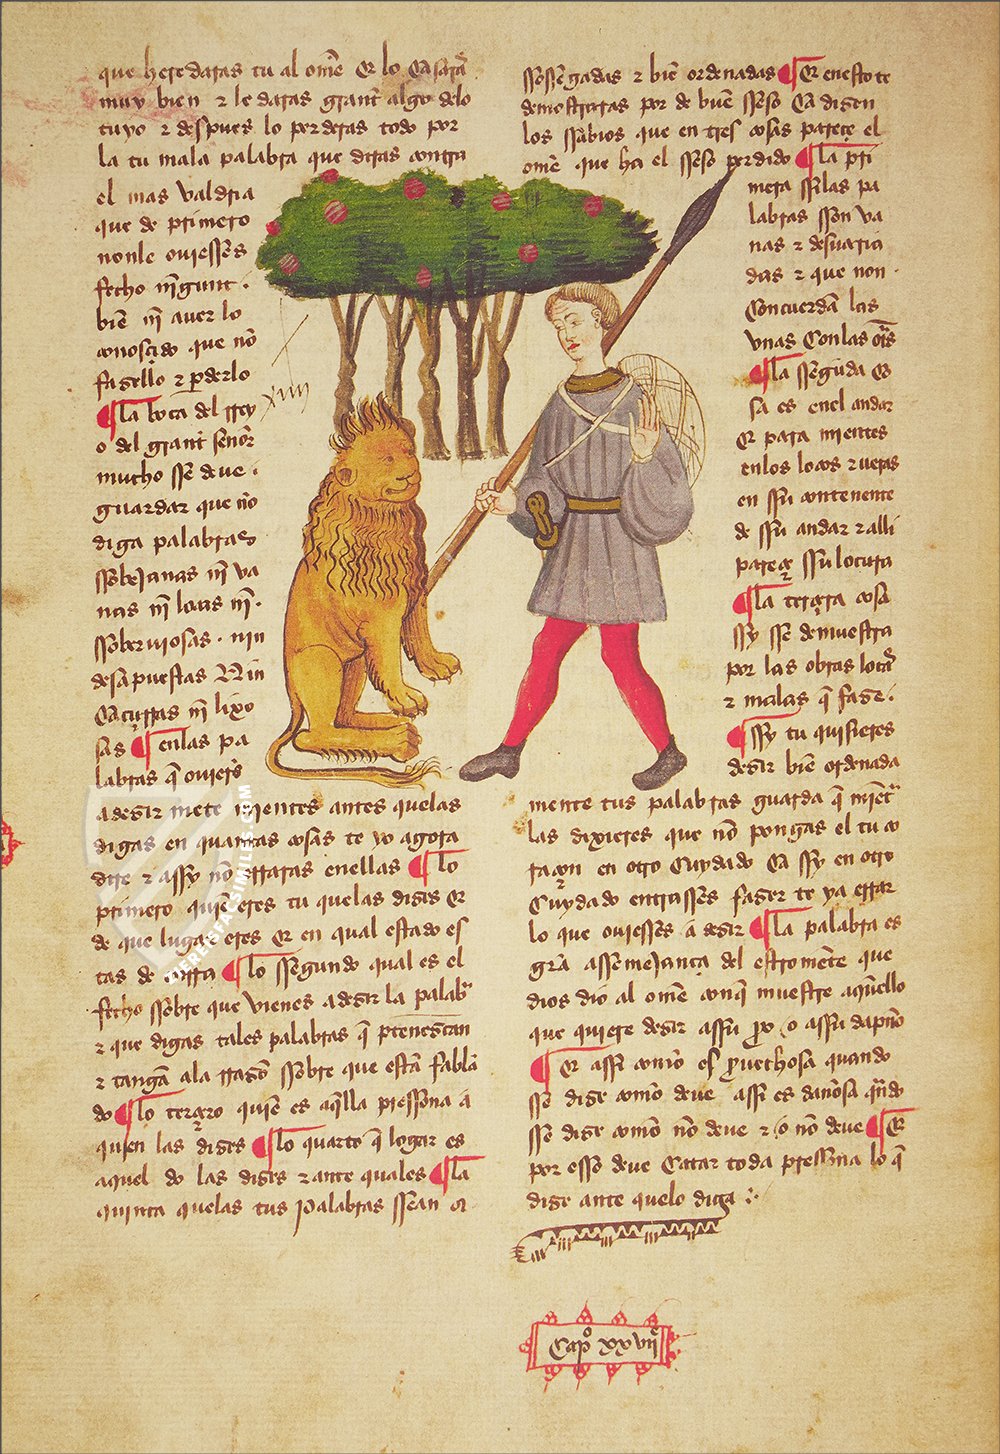 que heredaras tu al ome Et lo Casara
muy bien z le daras grant algo delo
tuyo z despues lo perderas todo por
la tu mala palabra que diras contra
el mas valdria
que de primero
nonle oviesses
fecho ningunt
bien nin aver lo
conosçido que non
fazello z perderlo
¶ la boca del rrey
o del grant señor
mucho sse deve
guardar que non
diga palabras
ssobejanas nin va
nas nin locas nin
ssoberviosas nin
desapuestas Nin
nin lixo
sas ¶ enlas pa
labras que ovieres
adezir mete mientes antes quelas
digas en quantas cosas te yo agora
dire z assy non erraras enellas ¶ lo
primero quien eres tu quelas dizes Et
de que lugar eres Et en qual estado es
tas de ¶ lo ssegundo qual es el
fecho ssobre que vienes adezir la palabra
z que digas tales palabras que pertenescan
z tangan ala rrazon ssobre que estan fablan
do ¶ lo terçero quien es aquella perssona a
quien las dizes ¶ lo quarto que logar es
aquel do las dizes z ante quales ¶ la
quinta quelas tus palabras ssean or
ssossegadas z bien ordenadas ¶ Et enesto te
demostraras por de buen ssesso Ca dizen
los ssabios que en tres cosas pareçe el
ome que ha el sseso perdido ¶ la pri
mera ssilas pa
labras sson va
nas z desvaria
das z que non
Concuerdan las
unas Conlas otras
¶ la ssegunda Co
sa es enel andar
Et para mientes
enlos locos z veras
en ssu contenente
de ssu andar z alli
pareçe ssu locura
¶ la terçera cosa
ssy sse demuestra
por las obras locas
z malas que faze
¶ ssy tu quisieres
dezir bien ordenada
mente tus palabras guarda que mientra
las dixieres que non pongas el tu co
raçon en otro Cuydado Ca ssy en otro
Cuydado entrasses fazer te ya errar
lo que oviesses a dezir ¶ la palabra es
gran assemejança del estromente que
dios dio al ome conque muestre aquello
que quiere dezir assu pro o assu dapno
¶ Et assi como es provechosa quando
sse dize como deve assi es dañosa quando
sse dize como non deve z o non deve ¶ Et
por esso deve Catar toda perssona lo que
dize ante quelo diga
Capo xxvii